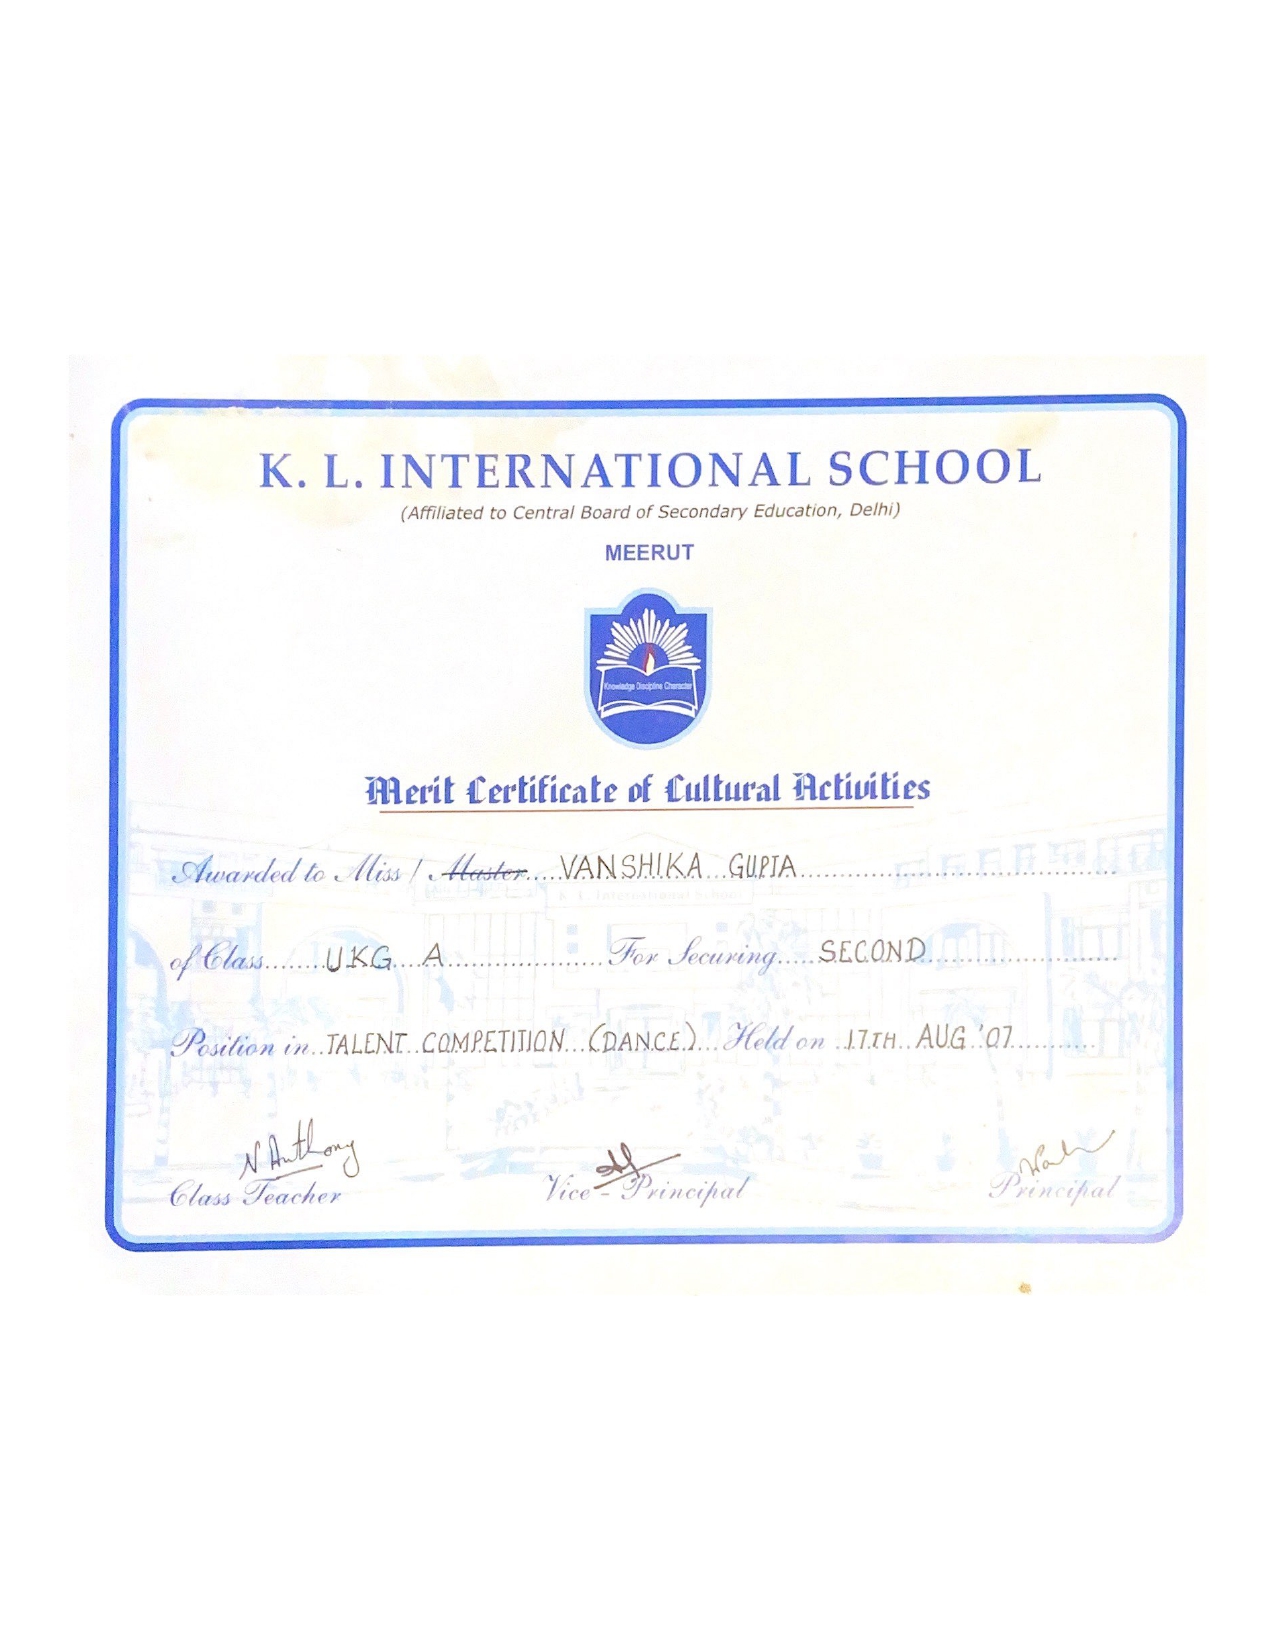 K. L. INTERNATIONAL SCHOOL
(Affiliated to Central Board of Secondary Education, Delhi)
MEERUT
Knowledge Discipline Character
Merit Certificate of Cultural Activities
Awarded to Miss / Master VANSHIKA GUPTA
K. L. International School
of Class UKG A For Securing SECOND
Position in TALENT COMPETITION (DANCE) Held on 17TH AUG '07
N Anthony
Class Teacher Vice - Principal Principal